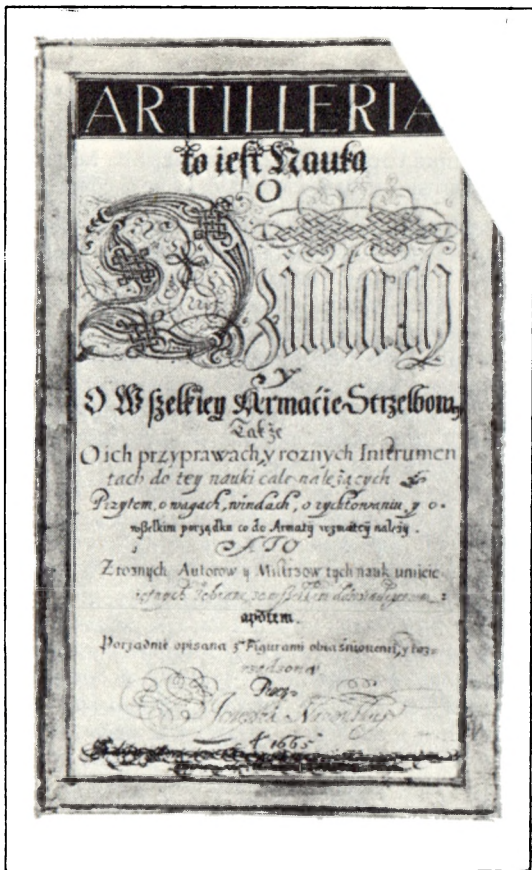 ARTILLERIA
to iest Nauka
O
Działach
y
O Wszelkiey Armacie Strzelbowey
Także
O ich przyprawach, y roznych Instrumen
tach do tey nauki cale należących
Przytem, o wagach, windach, o rychtowaniu, y o
wszelkim porządku co do Armaty wszelkiey należy.
A TO
Z roznych Autorow y Mistrzow tych nauk umieie
iętnych zebrane, ze wszelkim
a potem.
Porządnie opisana z Figurami obiaśnionemi, y roz
rzedzona
Przez
1665